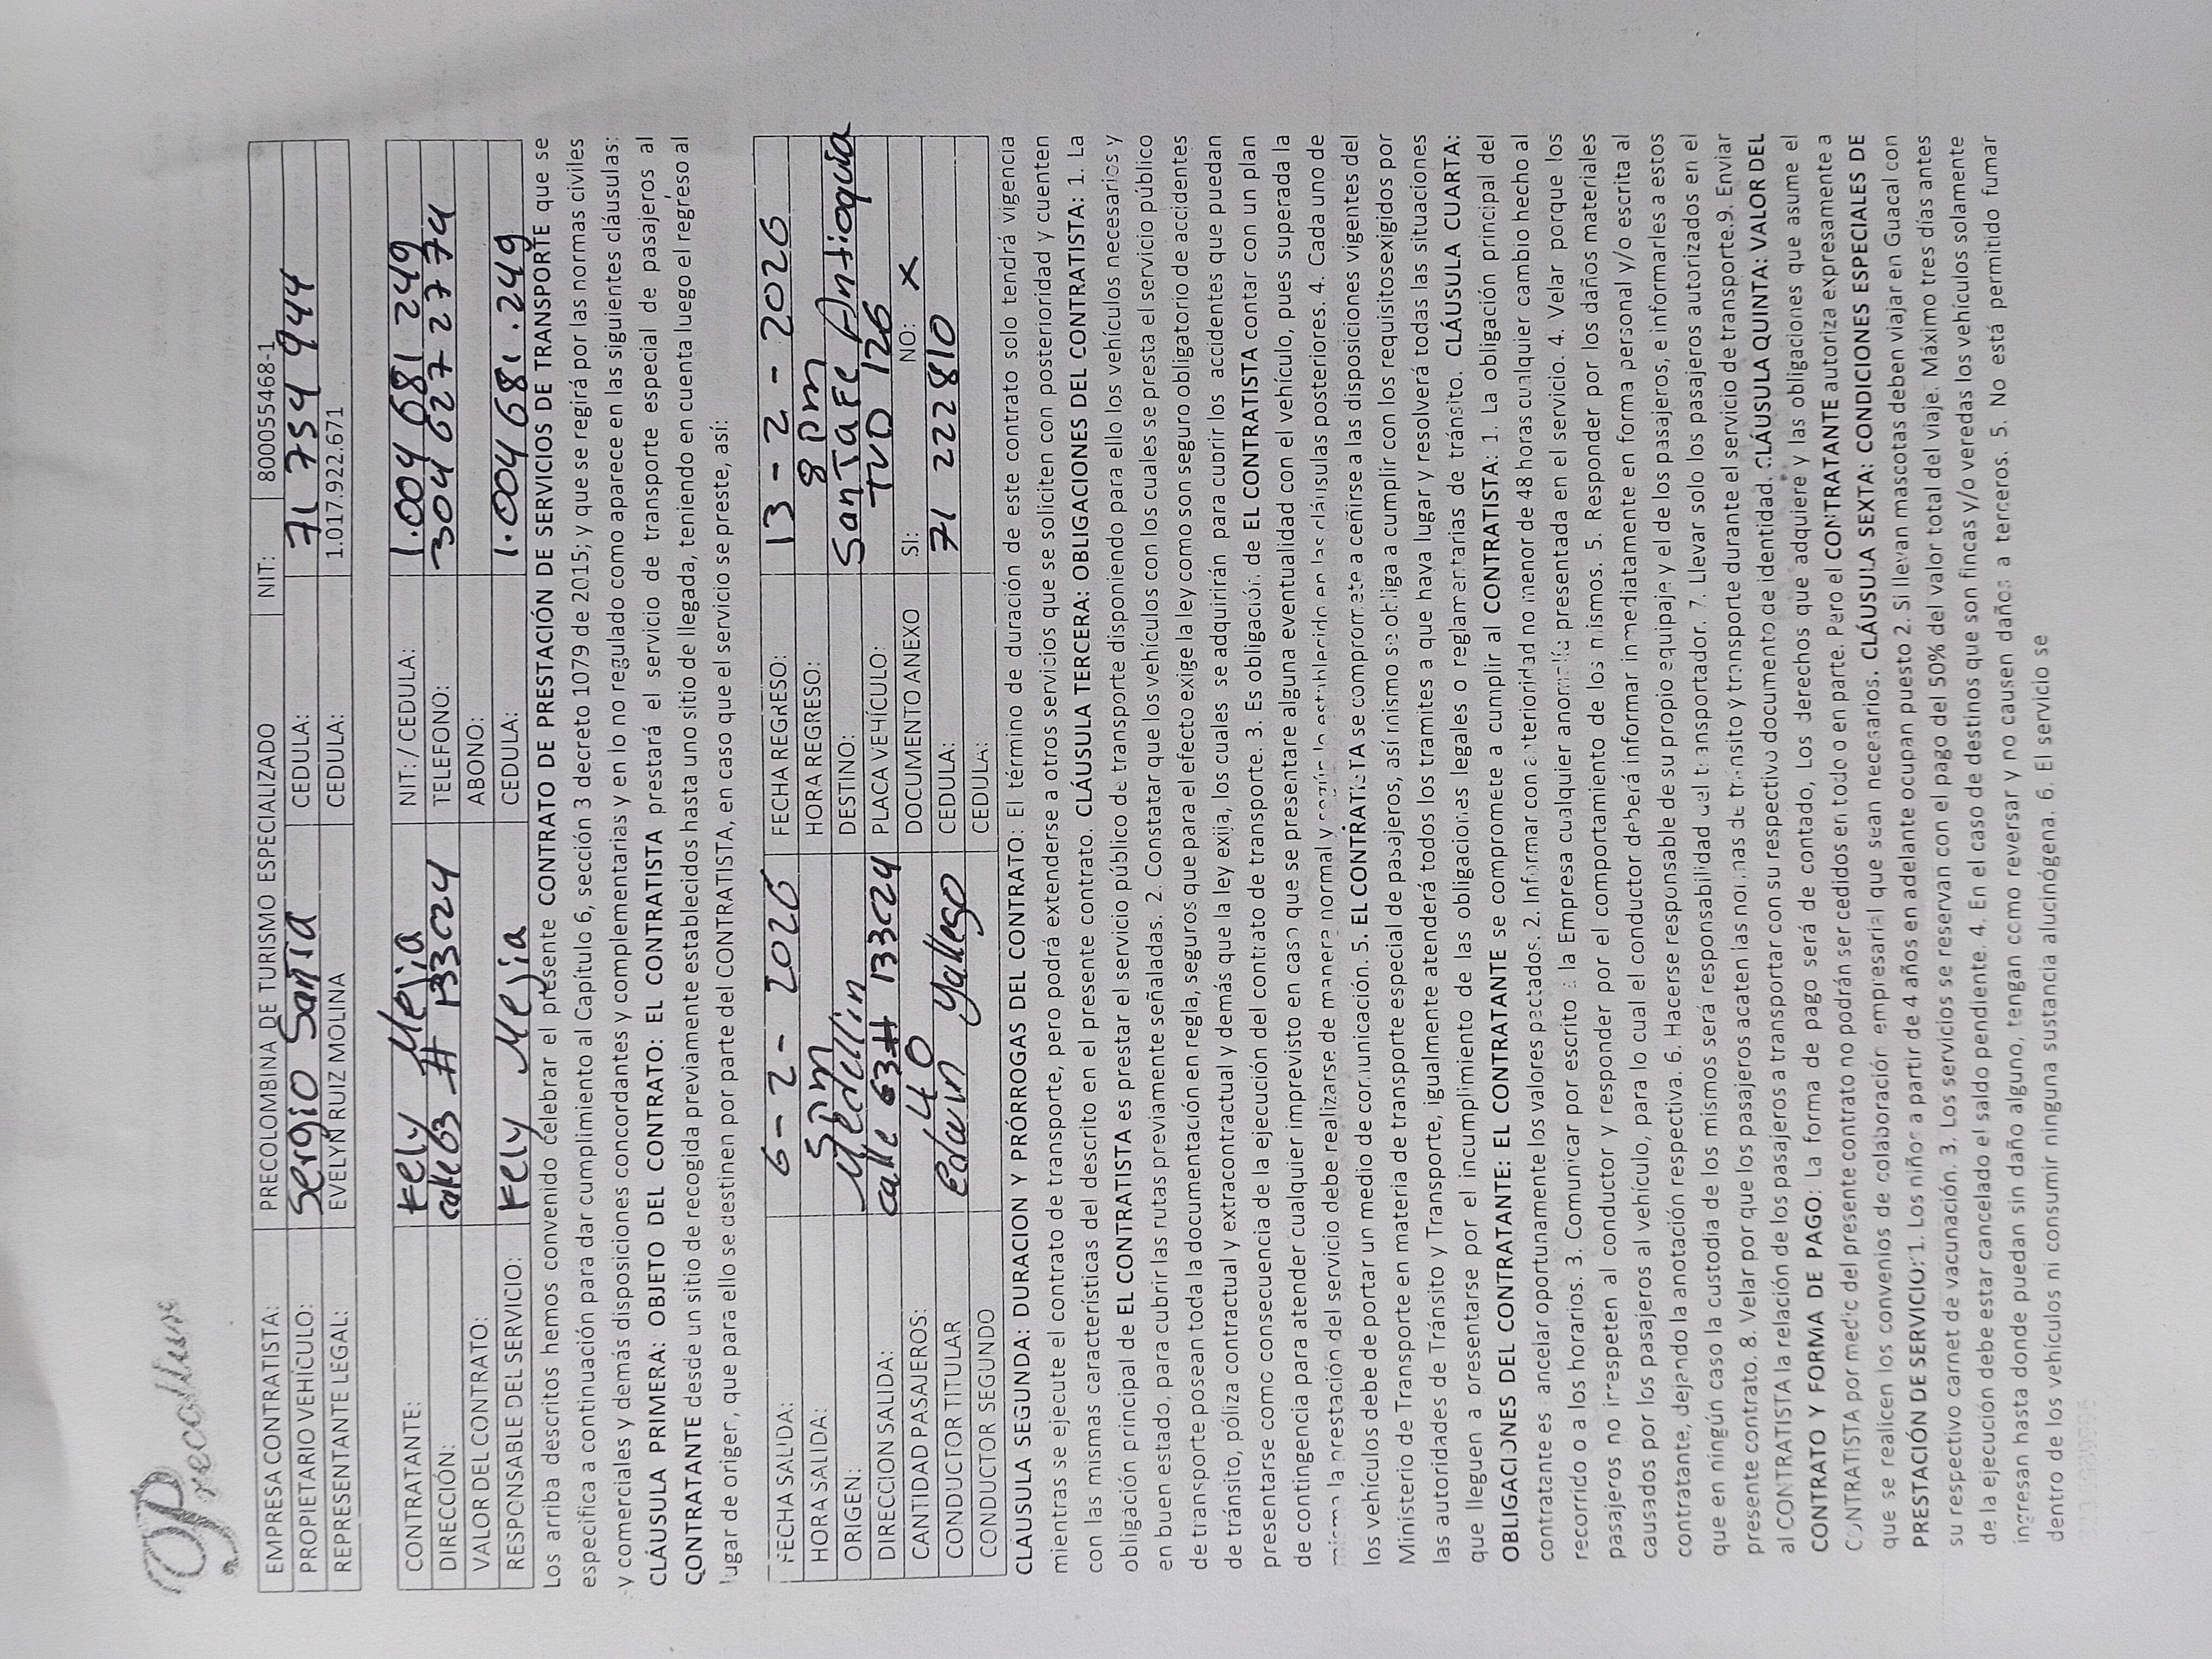 Precoltur
EMPRESA CONTRATISTA: PRECOLOMBINA DE TURISMO ESPECIALIZADO NIT: 800055468-1
PROPIETARIO VEHÍCULO: Sergio Santa CEDULA: 71 754 944
REPRESENTANTE LEGAL: EVELYN RUIZ MOLINA CEDULA: 1.017.922.671
CONTRATANTE: Kely Mejia NIT: / CEDULA: 1.004 681 249
DIRECCIÓN: calle 63 # 133c24 TELEFONO: 304 627 27 74
VALOR DEL CONTRATO: ABONO:
RESPONSABLE DEL SERVICIO: Kely Mejia CEDULA: 1.004 681.249
Los arriba descritos hemos convenido celebrar el presente CONTRATO DE PRESTACIÓN DE SERVICIOS DE TRANSPORTE que se
especifica a continuación para dar cumplimiento al Capítulo 6, sección 3 decreto 1079 de 2015; y que se regirá por las normas civiles
y comerciales y demás disposiciones concordantes y complementarias y en lo no regulado como aparece en las siguientes cláusulas:
CLÁUSULA PRIMERA: OBJETO DEL CONTRATO: EL CONTRATISTA prestará el servicio de transporte especial de pasajeros al
CONTRATANTE desde un sitio de recogida previamente establecidos hasta uno sitio de llegada, teniendo en cuenta luego el regreso al
lugar de origen, que para ello se destinen por parte del CONTRATISTA, en caso que el servicio se preste, así:
FECHA SALIDA: 6 - 2 - 2026 FECHA REGRESO: 13 - 2 - 2026
HORA SALIDA: 5 pm HORA REGRESO: 8 pm
ORIGEN: Medellin DESTINO: Santafe Antioquia
DIRECCION SALIDA: calle 63 # 133c24 PLACA VEHÍCULO: TVO 126
CANTIDAD PASAJEROS: 40 DOCUMENTO ANEXO SI: NO: X
CONDUCTOR TITULAR Edwin Gallego CEDULA: 71 222 810
CONDUCTOR SEGUNDO CEDULA:
CLAUSULA SEGUNDA: DURACION Y PRÓRROGAS DEL CONTRATO: El término de duración de este contrato solo tendrá vigencia
mientras se ejecute el contrato de transporte, pero podrá extenderse a otros servicios que se soliciten con posterioridad y cuenten
con las mismas características del descrito en el presente contrato. CLÁUSULA TERCERA: OBLIGACIONES DEL CONTRATISTA: 1. La
obligación principal de EL CONTRATISTA es prestar el servicio público de transporte disponiendo para ello los vehículos necesarios y
en buen estado, para cubrir las rutas previamente señaladas. 2. Constatar que los vehículos con los cuales se presta el servicio público
de transporte posean toda la documentación en regla, seguros que para el efecto exige la ley como son seguro obligatorio de accidentes
de tránsito, póliza contractual y extracontractual y demás que la ley exija, los cuales se adquirirán para cubrir los accidentes que puedan
presentarse como consecuencia de la ejecución del contrato de transporte. 3. Es obligación de EL CONTRATISTA contar con un plan
de contingencia para atender cualquier imprevisto en caso que se presentare alguna eventualidad con el vehículo, pues superada la
misma la prestación del servicio debe realizarse de manera normal y según lo establecido en las cláusulas posteriores. 4. Cada uno de
los vehículos debe de portar un medio de comunicación. 5. EL CONTRATISTA se compromete a ceñirse a las disposiciones vigentes del
Ministerio de Transporte en materia de transporte especial de pasajeros, así mismo se obliga a cumplir con los requisitosexigidos por
las autoridades de Tránsito y Transporte, igualmente atenderá todos los tramites a que haya lugar y resolverá todas las situaciones
que lleguen a presentarse por el incumplimiento de las obligaciones legales o reglamentarias de tránsito. CLÁUSULA CUARTA:
OBLIGACIONES DEL CONTRATANTE: EL CONTRATANTE se compromete a cumplir al CONTRATISTA: 1. La obligación principal del
contratante es ancelar oportunamente los valores pactados. 2. Informar con anterioridad no menor de 48 horas cualquier cambio hecho al
recorrido o a los horarios. 3. Comunicar por escrito a la Empresa cualquier anomalía presentada en el servicio. 4. Velar porque los
pasajeros no irrespeten al conductor y responder por el comportamiento de los mismos. 5. Responder por los daños materiales
causados por los pasajeros al vehículo, para lo cual el conductor deberá informar inmediatamente en forma personal y/o escrita al
contratante, dejando la anotación respectiva. 6. Hacerse responsable de su propio equipaje y el de los pasajeros, e informarles a estos
que en ningún caso la custodia de los mismos será responsabilidad del transportador. 7. Llevar solo los pasajeros autorizados en el
presente contrato. 8. Velar por que los pasajeros acaten las normas de tránsito y transporte durante el servicio de transporte.9. Enviar
al CONTRATISTA la relación de los pasajeros a transportar con su respectivo documento de identidad. CLÁUSULA QUINTA: VALOR DEL
CONTRATO Y FORMA DE PAGO: La forma de pago será de contado, Los derechos que adquiere y las obligaciones que asume el
CONTRATISTA por medio del presente contrato no podrán ser cedidos en todo o en parte. Pero el CONTRATANTE autoriza expresamente a
que se realicen los convenios de colaboración empresarial que sean necesarios. CLÁUSULA SEXTA: CONDICIONES ESPECIALES DE
PRESTACIÓN DE SERVICIO: 1. Los niños a partir de 4 años en adelante ocupan puesto 2. Si llevan mascotas deben viajar en Guacal con
su respectivo carnet de vacunación. 3. Los servicios se reservan con el pago del 50% del valor total del viaje. Máximo tres días antes
de la ejecución debe estar cancelado el saldo pendiente. 4. En el caso de destinos que son fincas y/o veredas los vehículos solamente
ingresan hasta donde puedan sin daño alguno, tengan como reversar y no causen daños a terceros. 5. No está permitido fumar
dentro de los vehículos ni consumir ninguna sustancia alucinógena. 6. El servicio se